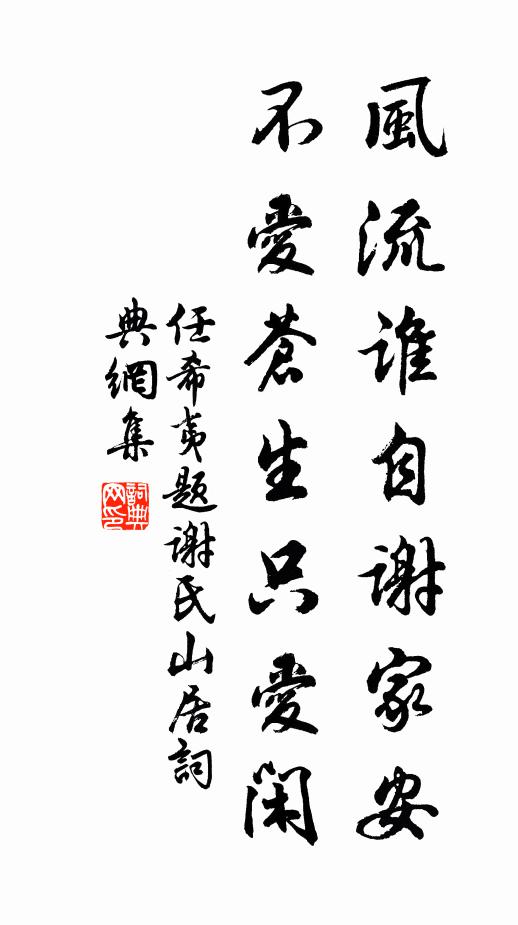 風流誰自謝家安
不愛蒼生只愛閑
任希夷題謝氏山居詞
典網集
詞典
网印